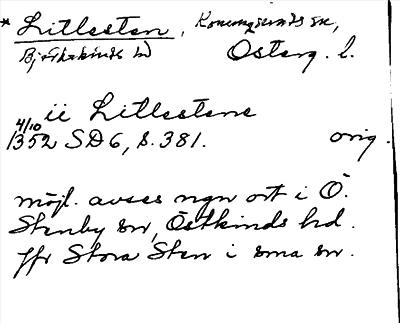 * Litlesten, Konungsunds sn,
Björkekinds hd Österg. l.
ii Litlestene
4/10
1352 SD6, s. 381. orig.
möjl. avses ngn ort i Ö.
Stenby sn, Östkinds hd.
jfr Stora Sten i sma sn.